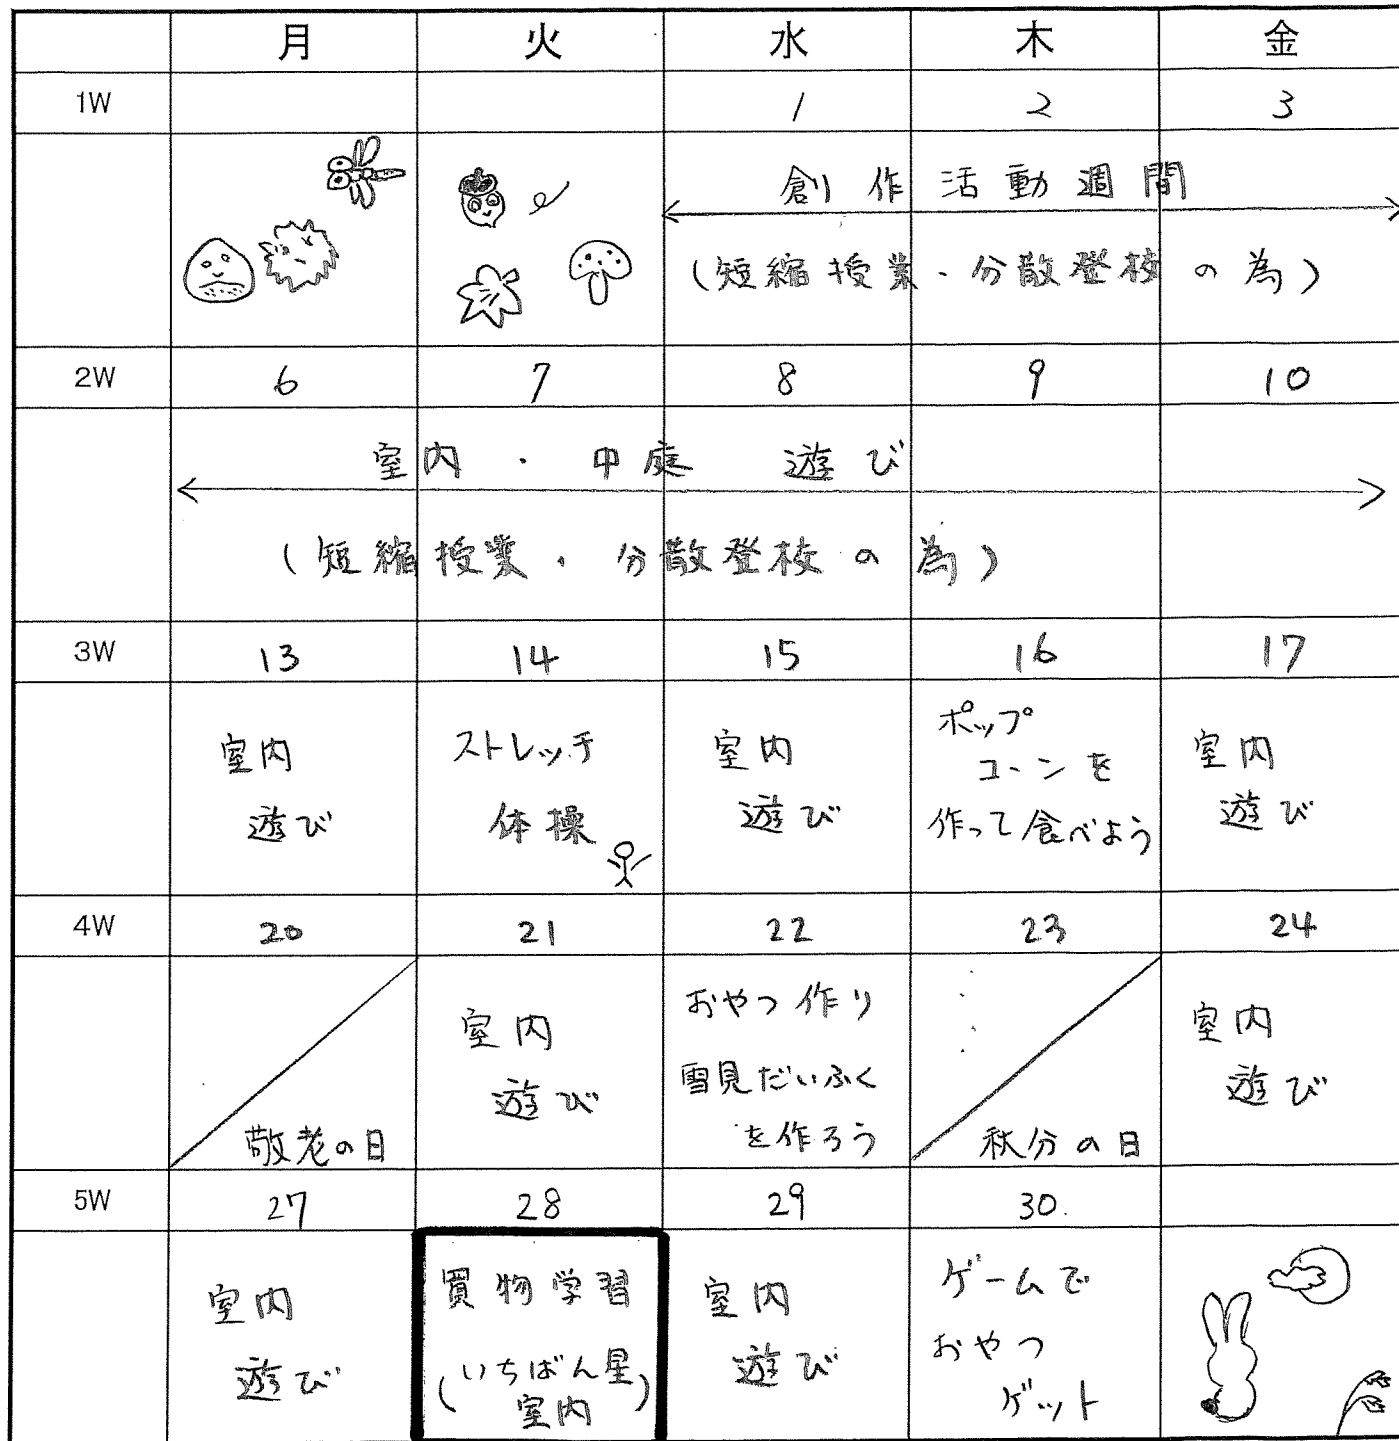 月 火 水 木 金
1W 1 2 3
創作活動週間
(短縮授業・分散登校の為)
2W 6 7 8 9 10
室内・中庭 遊び
(短縮授業・分散登校の為)
3W 13 14 15 16 17
室内
遊び
ストレッチ
体操
室内
遊び
ポップ
コーンを
作って食べよう
室内
遊び
4W 20 21 22 23 24
敬老の日
室内
遊び
おやつ作り
雪見だいふく
を作ろう
秋分の日
室内
遊び
5W 27 28 29 30
室内
遊び
買物学習
(いちばん星
室内)
室内
遊び
ゲームで
おやつ
ゲット